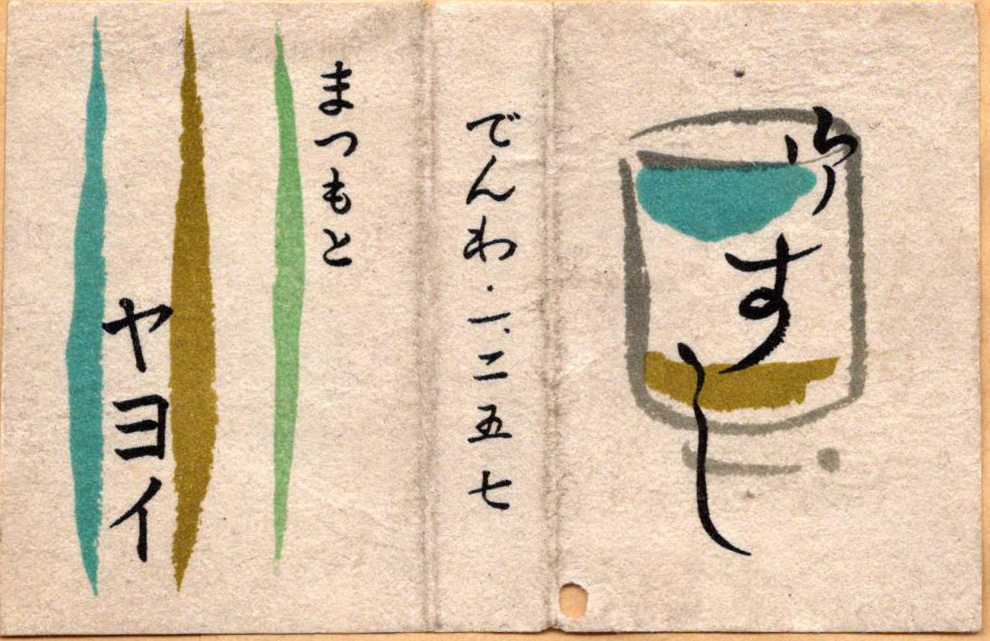 御すし
でんわ・一、二五七
まつもと
ヤヨイ